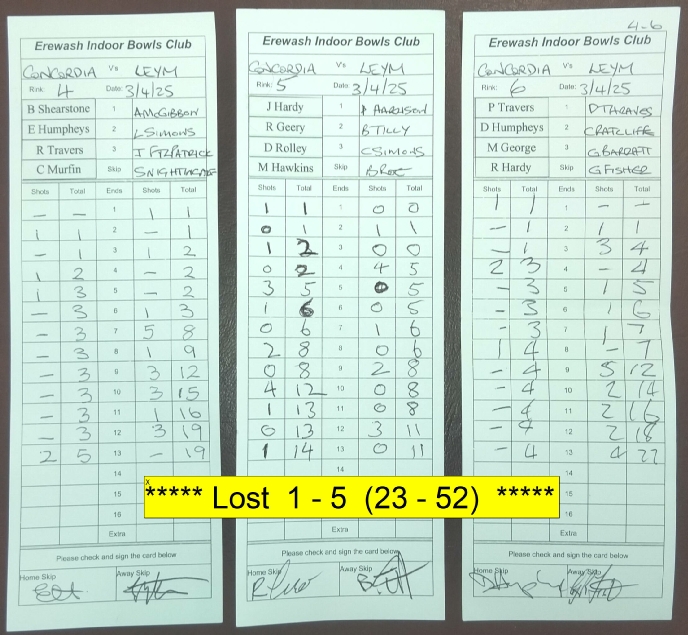 Erewash Indoor Bowls Club
CONCORDIA V's LEYM
Rink: 4 Date: 3/4/25
B Shearstone 1 A McGIBBON
E Humpheys 2 L SIMONS
R Travers 3 J FITZPATRICK
C Murfin Skip S NIGHTINGALE
Shots Total Ends Shots Total
- - 1 1 1
1 1 2 - 1
- 1 3 1 2
1 2 4 - 2
1 3 5 - 2
- 3 6 1 3
- 3 7 5 8
- 3 8 1 9
- 3 9 3 12
- 3 10 3 15
- 3 11 1 16
- 3 12 3 19
2 5 13 - 19
14
15
16
Extra
Please check and sign the card below
Home Skip Away Skip
Erewash Indoor Bowls Club
CONCORDIA V's LEYM
Rink: 5 Date: 3/4/25
J Hardy 1
R Geery 2 B TILLY
D Rolley 3 C SIMONS
M Hawkins Skip
Shots Total Ends Shots Total
1 1 1 0 0
0 1 2 1 1
1 2 3 0 0
0 2 4 4 5
3 5 5 0 5
1 6 6 0 5
0 6 7 1 6
2 8 8 0 6
0 8 9 2 8
4 12 10 0 8
1 13 11 0 8
0 13 12 3 11
1 14 13 0 11
14
Extra
Please check and sign the card below
Home Skip Away Skip
4-6
Erewash Indoor Bowls Club
CONCORDIA V's LEYM
Rink: 6 Date: 3/4/25
P Travers 1 D THRAVES
D Humpheys 2 C RATCLIFFE
M George 3 G BARRATT
R Hardy Skip G FISHER
Shots Total Ends Shots Total
1 1 1 - -
- 1 2 1 1
- 1 3 3 4
2 3 4 - 4
- 3 5 1 5
- 3 6 1 6
- 3 7 1 7
1 4 8 - 7
- 4 9 5 12
- 4 10 2 14
- 4 11 2 16
- 4 12 2 18
- 4 13 4 22
14
15
16
Extra
Please check and sign the card below
Home Skip Away Skip
x
***** Lost 1 - 5 (23 - 52) *****